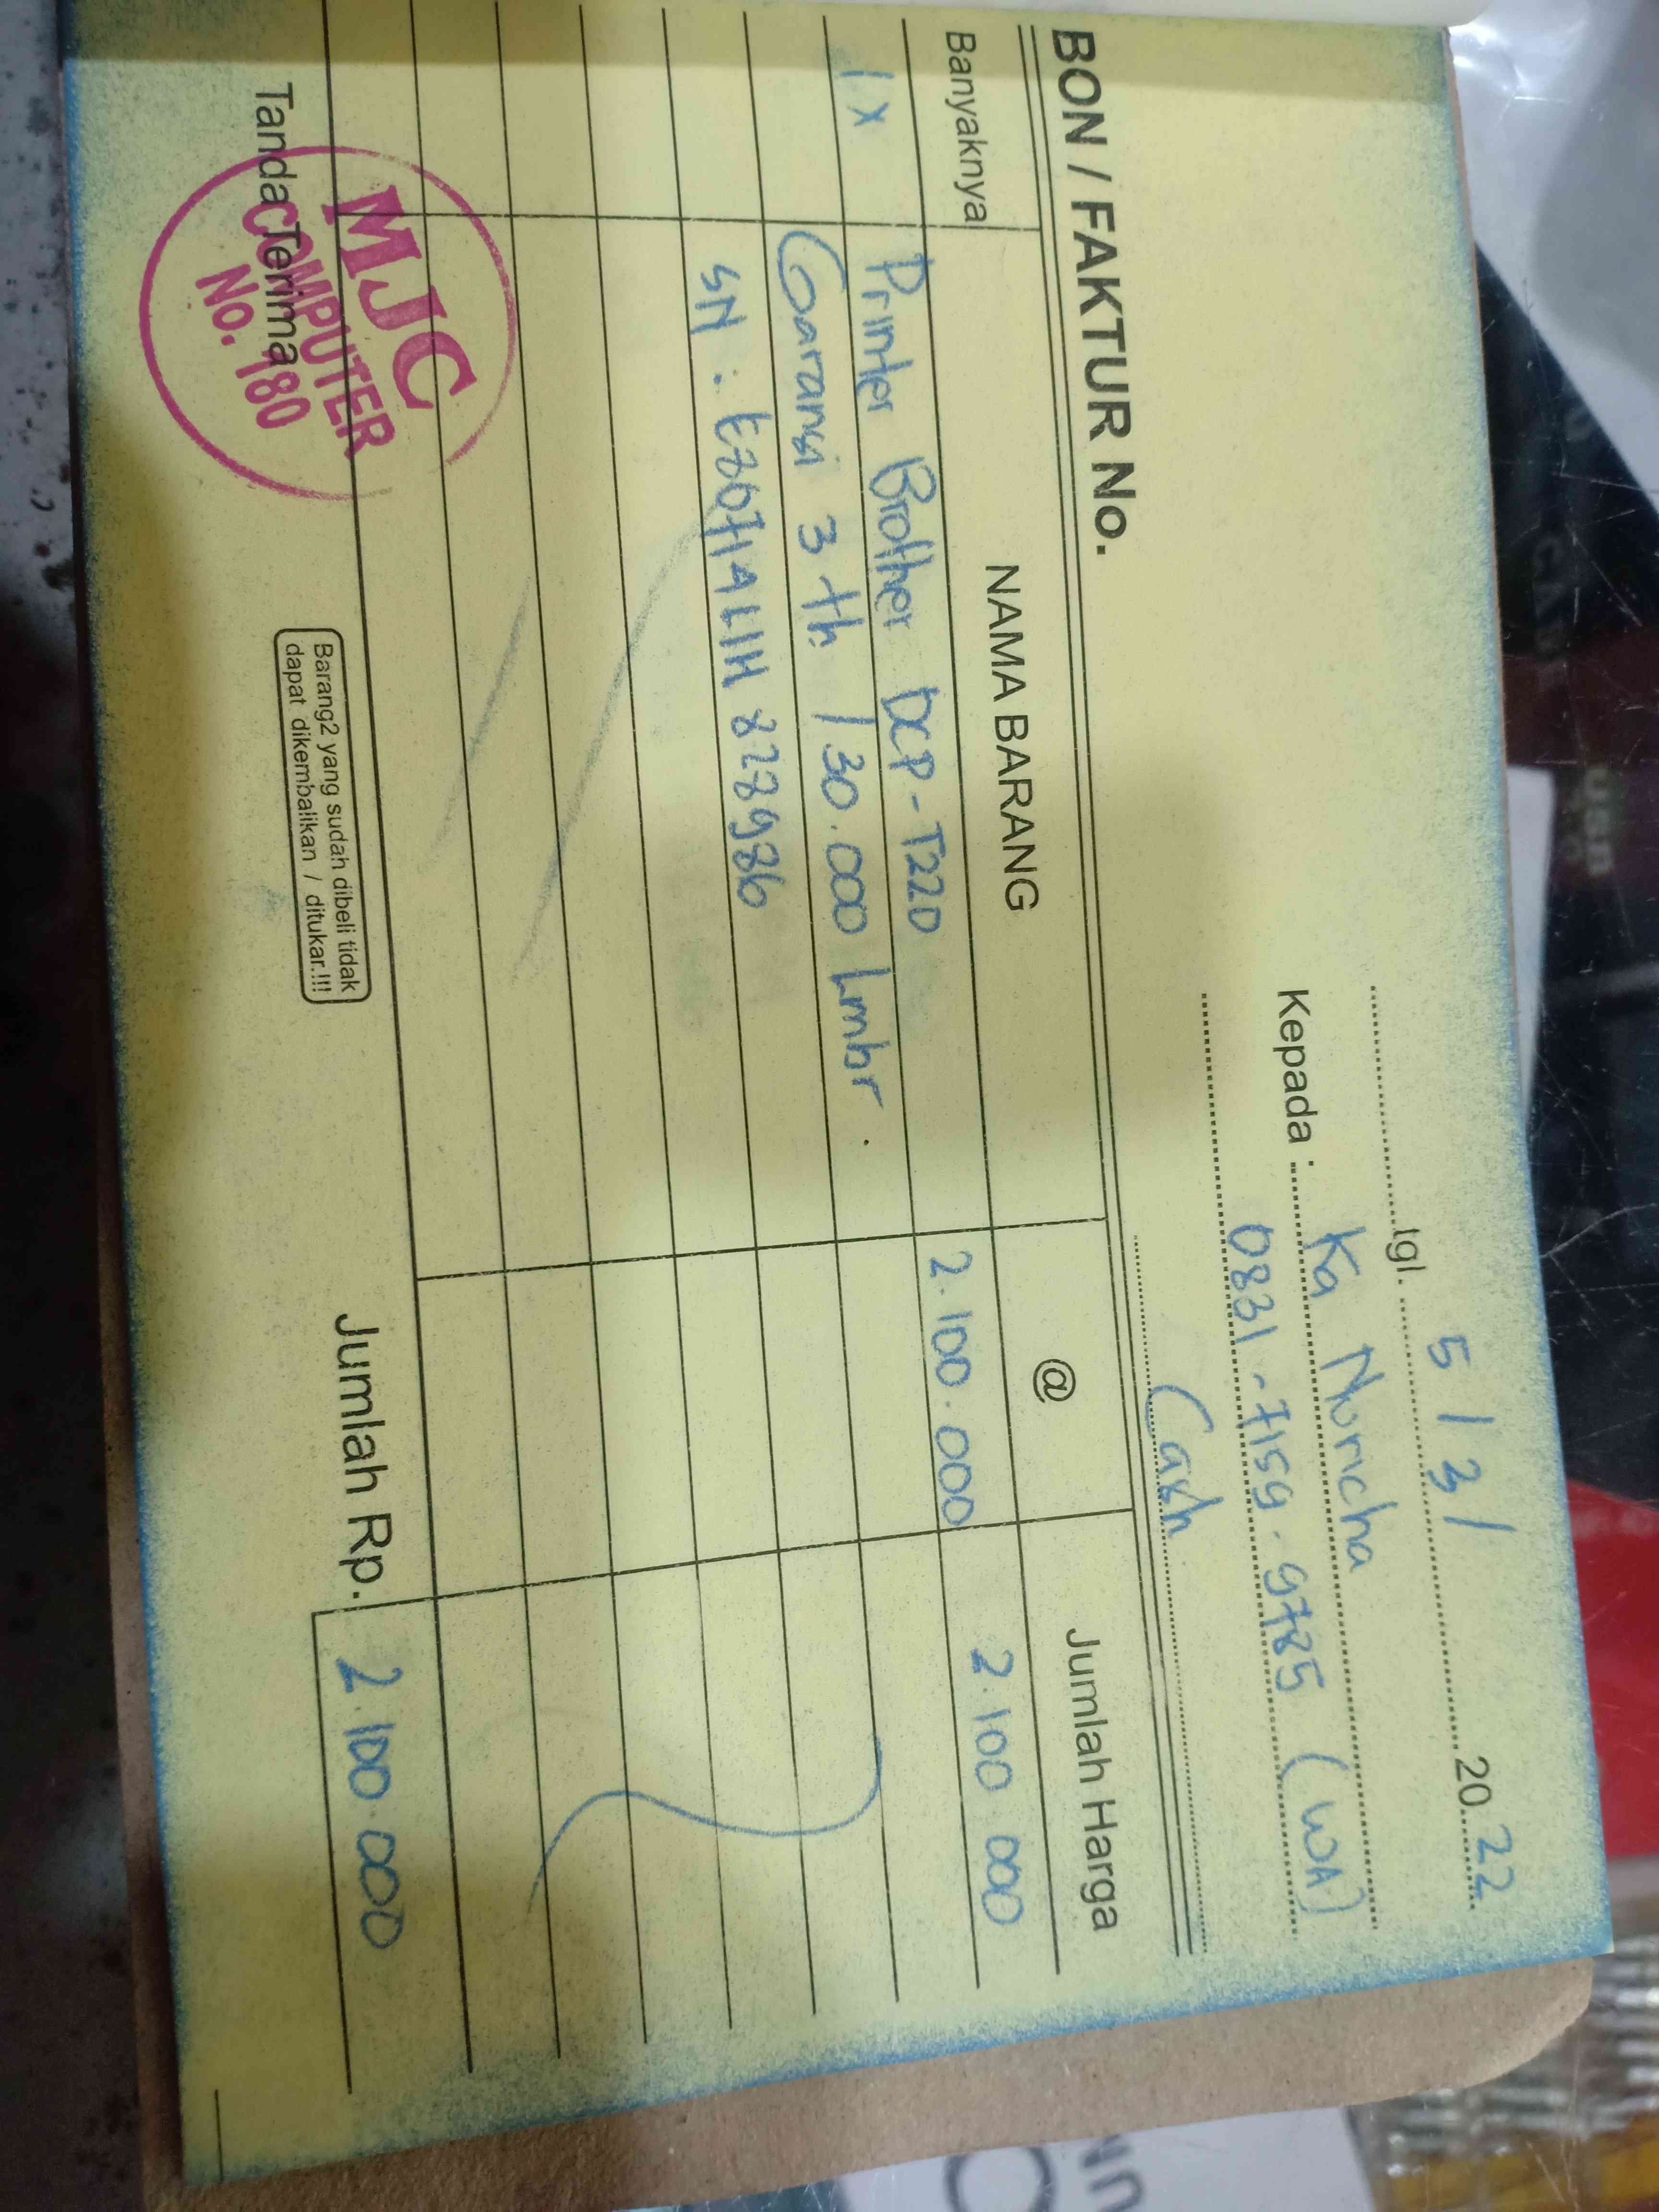 tgl. 5 / 3 / 20 22
Kepada : Ka Noricha
0831-7159.9785 (WA)
Cash
BON / FAKTUR No.
Banyaknya NAMA BARANG @ Jumlah Harga
1 x Printer Brother DCP-T220 2.100.000 2.100 000
Garansi 3 th / 30.000 Lmbr.
SN :
Tanda Terima
MJC
COMPUTER
No. 180
Barang2 yang sudah dibeli tidak
dapat dikembalikan / ditukar.!!!
Jumlah Rp. 2.100.000